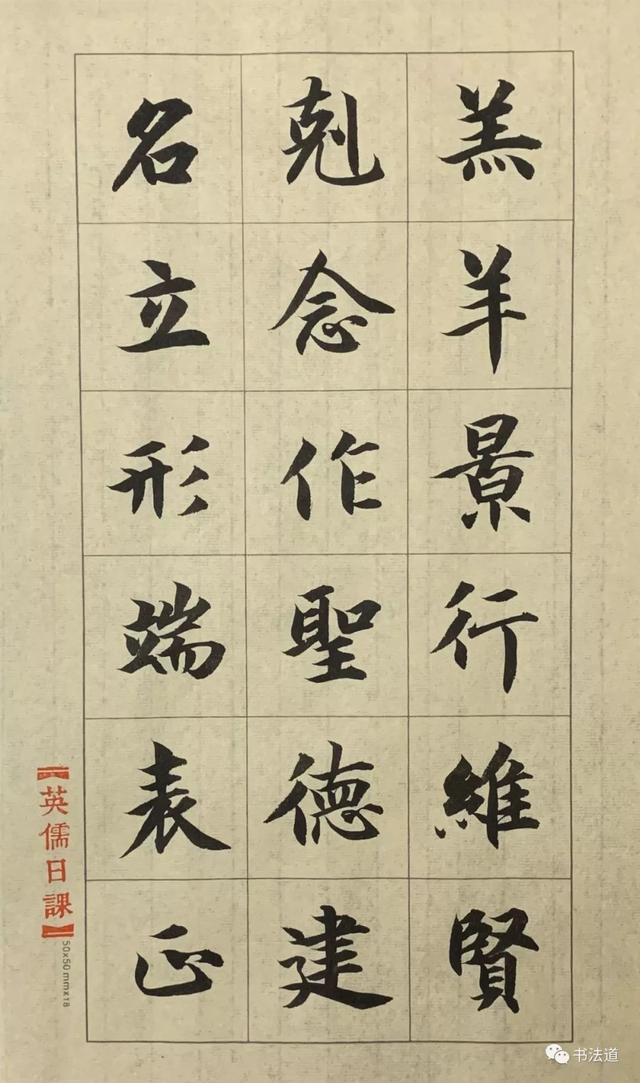 羔羊景行維賢
剋念作聖德建
名立形端表正
【英儒日課】
50x50mmx18
书法道